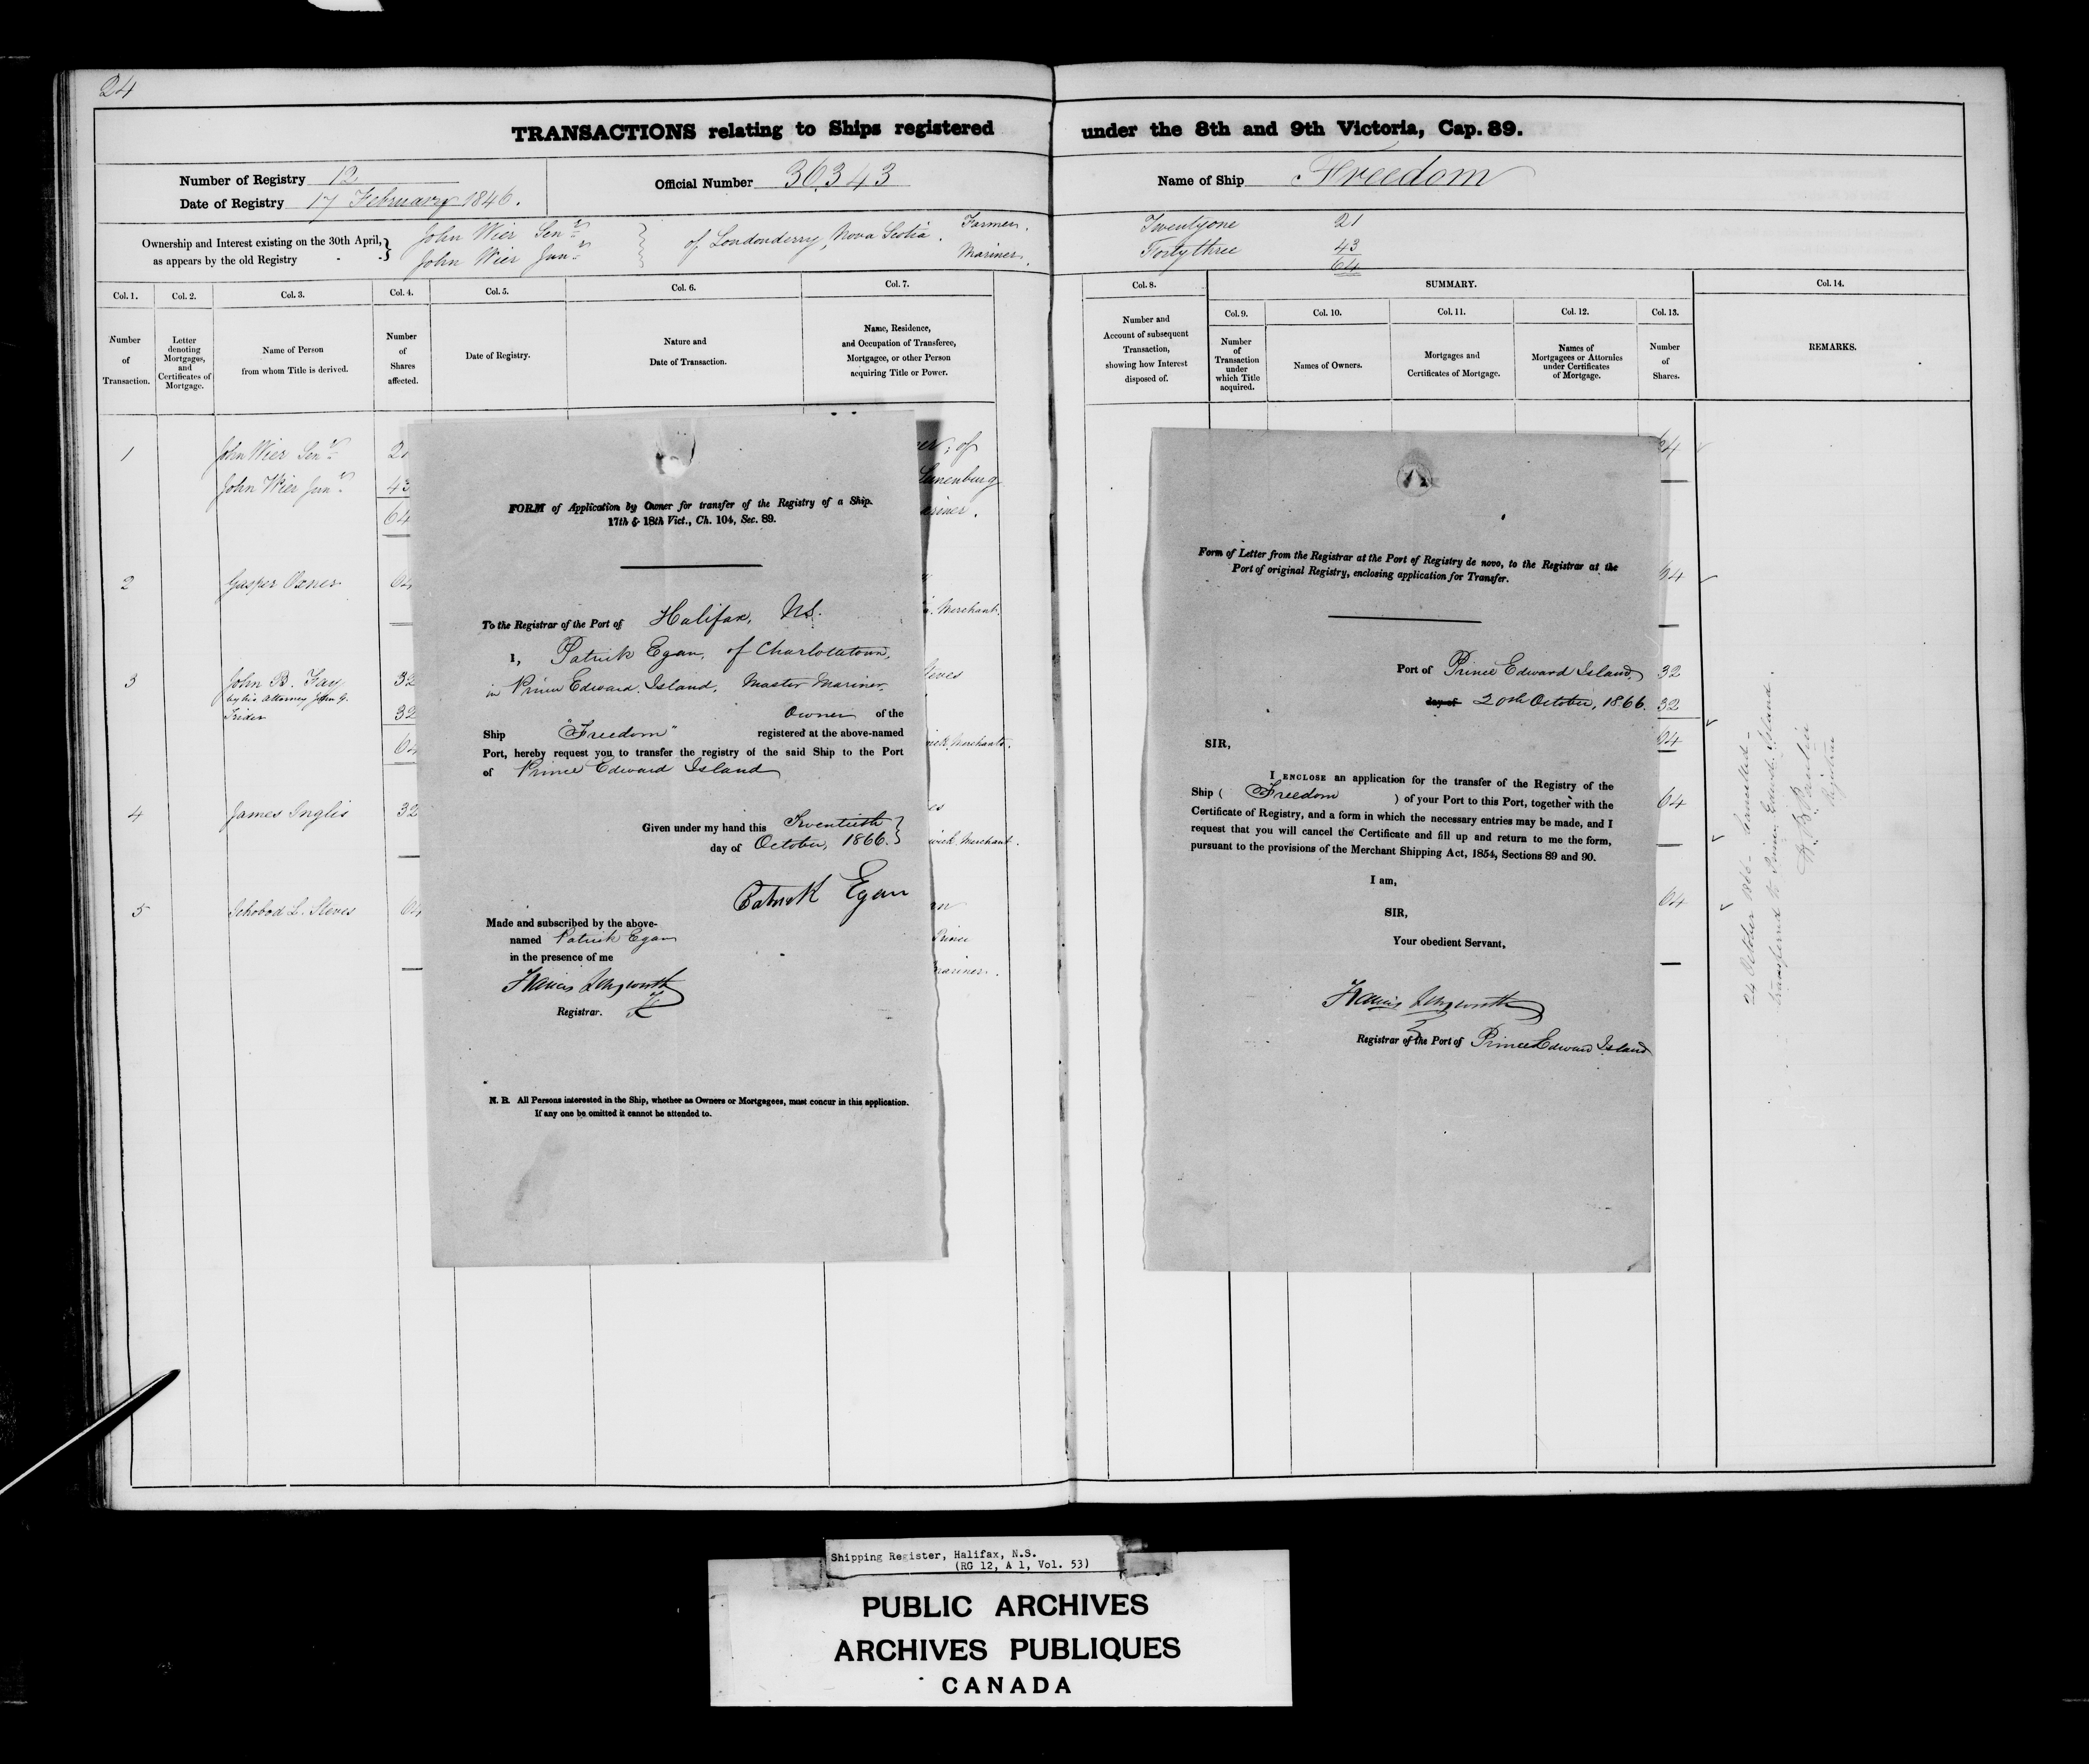 24
TRANSACTIONS relating to Ships registered under the 8th and 9th Victoria, Cap. 89.
Number of Registry 12
Date of Registry 17 February 1846.
Official Number 36343
Name of Ship Freedom
Ownership and Interest existing on the 30th April, as appears by the old Registry
John Wier Senr
John Wier Junr
of Londonderry, Nova Scotia.
Farmer.
Mariner.
Twentyone 21
Fortythree 43
64
Col. 1. Col. 2. Col. 3. Col. 4. Col. 5. Col. 6. Col. 7.
Number of Transaction.
Letter denoting Mortgages, and Certificates of Mortgage.
Name of Person from whom Title is derived.
Number of Shares affected.
Date of Registry.
Nature and Date of Transaction.
Name, Residence, and Occupation of Transferee, Mortgagee, or other Person acquiring Title or Power.
Col. 8. SUMMARY. Col. 14.
Number and Account of subsequent Transaction, showing how Interest disposed of.
Col. 9. Col. 10. Col. 11. Col. 12. Col. 13.
Number of Transaction under which Title acquired.
Names of Owners.
Mortgages and Certificates of Mortgage.
Names of Mortgagees or Attornies under Certificates of Mortgage.
Number of Shares.
REMARKS.
1 John Wier Senr 21
John Wier Junr 43
64
of
Lunenburg
2 Gasper Oxner
Merchant.
3 John B. Fay 32
by his Attorney John G.
32
Steves
Merchants.
4 James Inglis 32
Merchant.
5 Ichobod L. Steves
Prince
Mariner.
FORM of Application by Owner for transfer of the Registry of a Ship.
17th & 18th Vict., Ch. 104, Sec. 89.
To the Registrar of the Port of Halifax, NS.
I, Patrick Egan, of Charlottetown,
in Prince Edward Island, Master Mariner,
Owner of the
Ship "Freedom" registered at the above-named
Port, hereby request you to transfer the registry of the said Ship to the Port
of Prince Edward Island
Given under my hand this Twentieth
day of October, 1866.
Patrick Egan
Made and subscribed by the above-
named Patrick Egan
in the presence of me
Francis Longworth
Registrar.
N. B. All Persons interested in the Ship, whether as Owners or Mortgagees, must concur in this application.
If any one be omitted it cannot be attended to.
Form of Letter from the Registrar at the Port of Registry de novo, to the Registrar at the
Port of original Registry, enclosing application for Transfer.
Port of Prince Edward Island,
day of 20th October, 1866.
SIR,
I ENCLOSE an application for the transfer of the Registry of the
Ship ( Freedom ) of your Port to this Port, together with the
Certificate of Registry, and a form in which the necessary entries may be made, and I
request that you will cancel the Certificate and fill up and return to me the form,
pursuant to the provisions of the Merchant Shipping Act, 1854, Sections 89 and 90.
I am,
SIR,
Your obedient Servant,
Francis Longworth
Registrar of the Port of Prince Edward Island
64
32
32
64
64
64
24 October 1866
transferred to Prince Edward Island.
Registrar
Shipping Register, Halifax, N.S.
(RG 12, A 1, Vol. 53)
PUBLIC ARCHIVES
ARCHIVES PUBLIQUES
CANADA